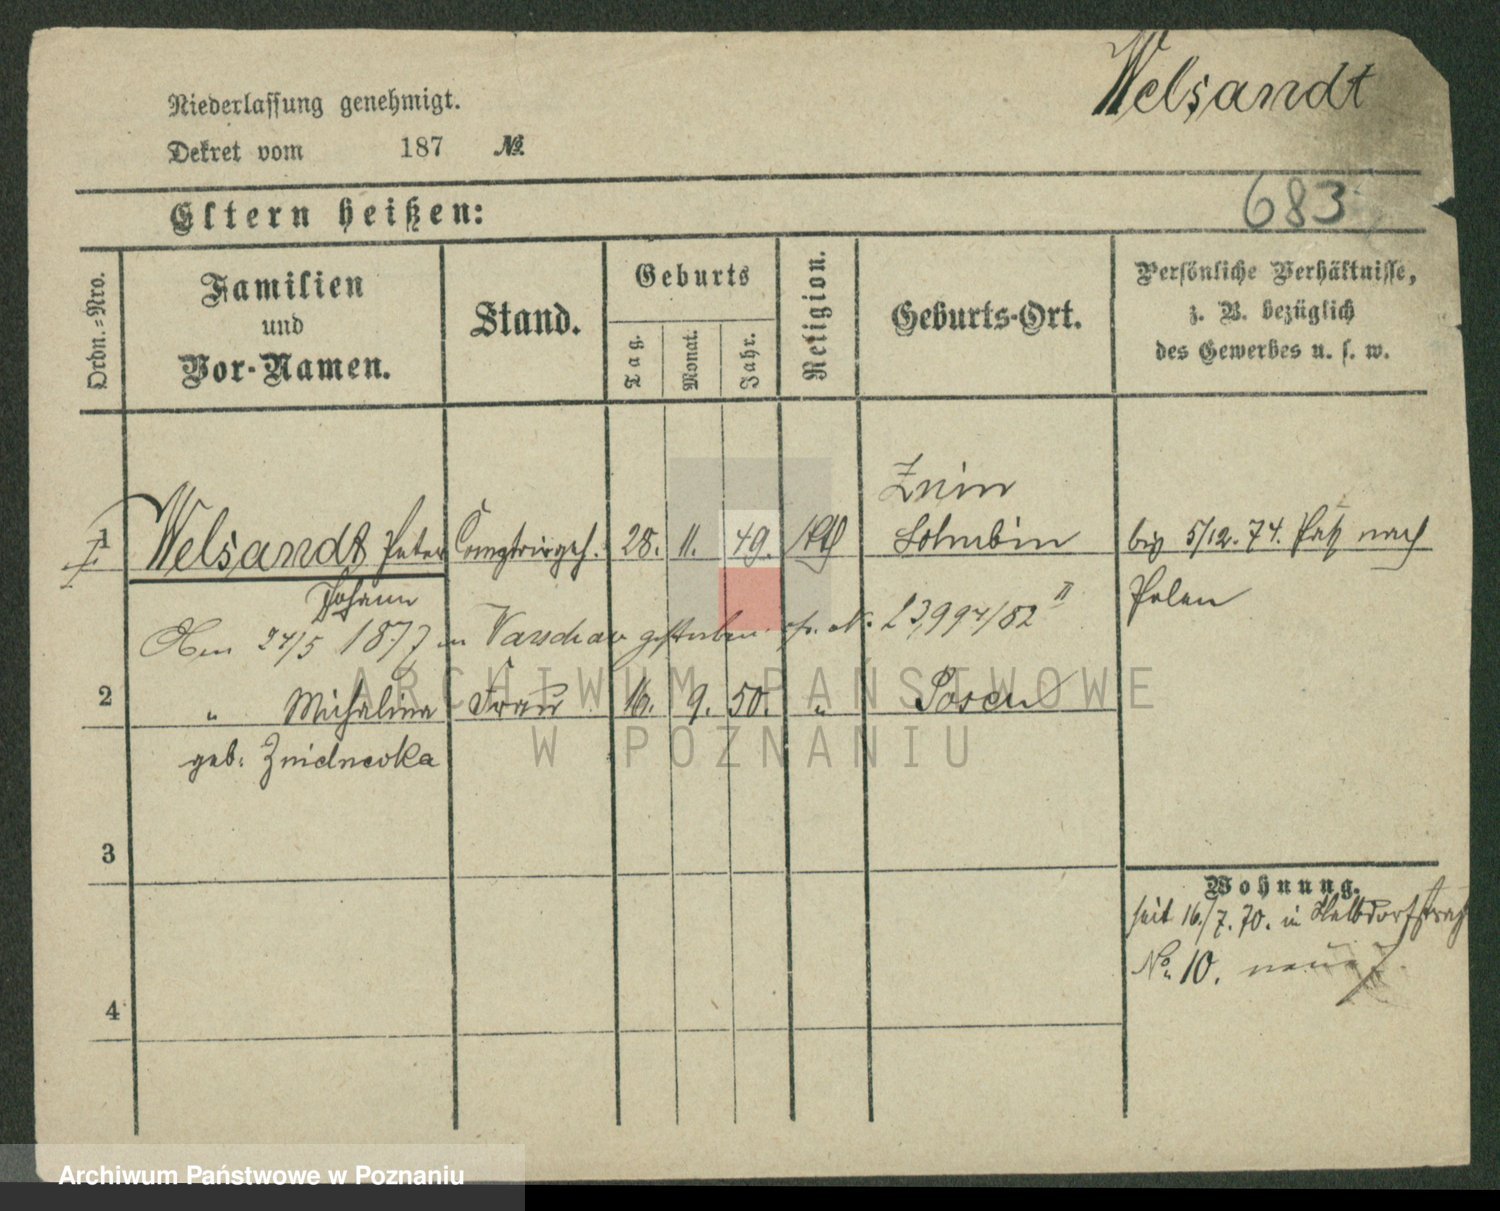 Welsandt
Niederlassung genehmigt.
Dekret vom 187 №
683
Eltern heißen:
Ordn.-Nro.
Familien
und
Vor-Namen.
Stand.
Geburts
Tag.
Monat.
Jahr.
Religion.
Geburts-Ort.
Persönliche Verhältnisse,
z. B. bezüglich
des Gewerbes u. s. w.
Znin
1 Welsandt Peter 28. 11. 49. bis 5/12. 74. Paß nach
Johann
Polen
Am 24/5 1877 in Warschau gestorben. No. 23,994/82 II
2 " Michalina Frau 16. 9. 50. " Posen
geb.
3
Wohnung.
seit 16./7. 70. in Halbdorfstraße
No. 10.
4
ARCHIWUM PAŃSTWOWE
W POZNANIU
Archiwum Państwowe w Poznaniu